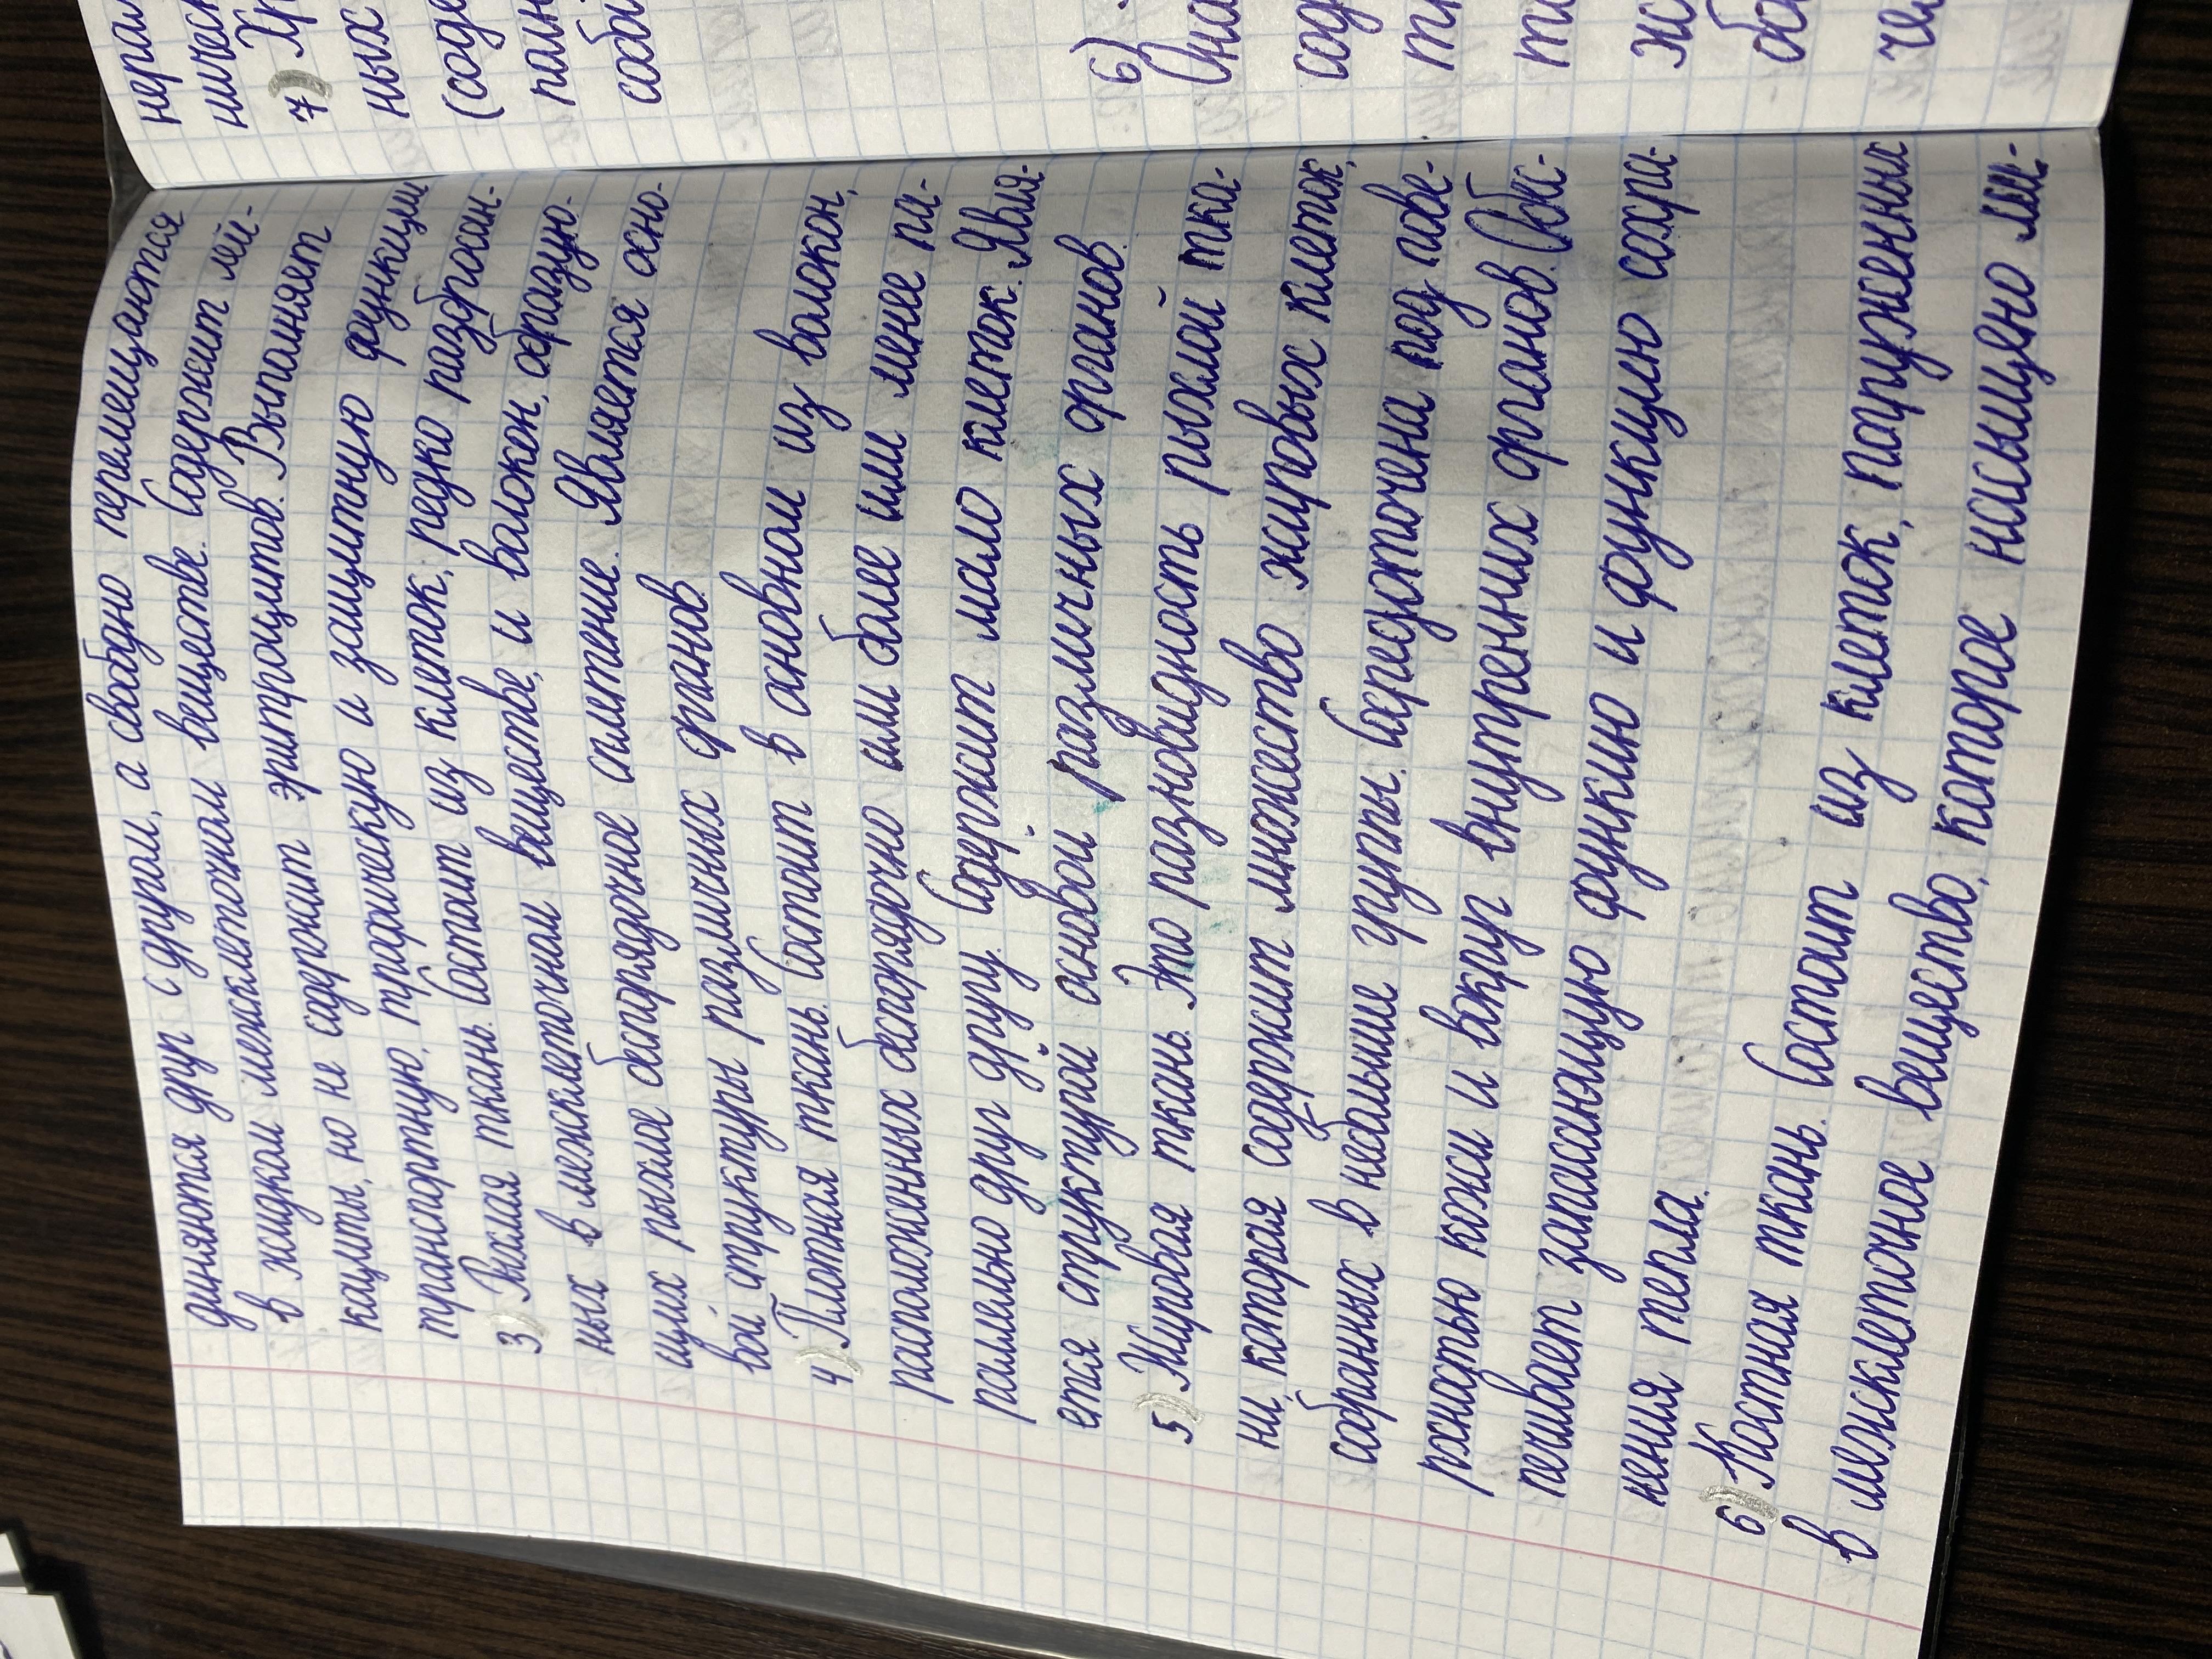 диняются друг с другом, а свободно перемещаются
в жидком межклеточном веществе. Содержит лей-
коциты, но не содержит эритроцитов. Выполняет
транспортную, трофическую и защитную функции
3) Рыхлая ткань. Состоит из клеток, редко разбросан-
ных в межклеточном веществе, и волокон, образую-
щих рыхлое беспорядочное сплетение. Является осно-
вой структуры различных органов.
4) Плотная ткань. Состоит в основном из волокон,
расположенных беспорядочно или более или менее па-
раллельно друг другу. Содержит мало клеток. Явля-
ется структурой основой различных органов.
5) Жировая ткань. Это разновидность рыхлой тка-
ни, которая содержит множество жировых клеток,
собранных в небольшие группы. Сосредоточена под пове-
рхностью кожи и вокруг внутренних органов. Обес-
печивает запасающую функию и функцию сохра-
нения тепла.
6) Костная ткань. Состоит из клеток, погруженных
в межклеточное вещество, которое насыщено ми-
нерал
ничес
7) Хр
ных
(соде
полн
соби
6)
Она
сод
тк
то
жс
обо
че